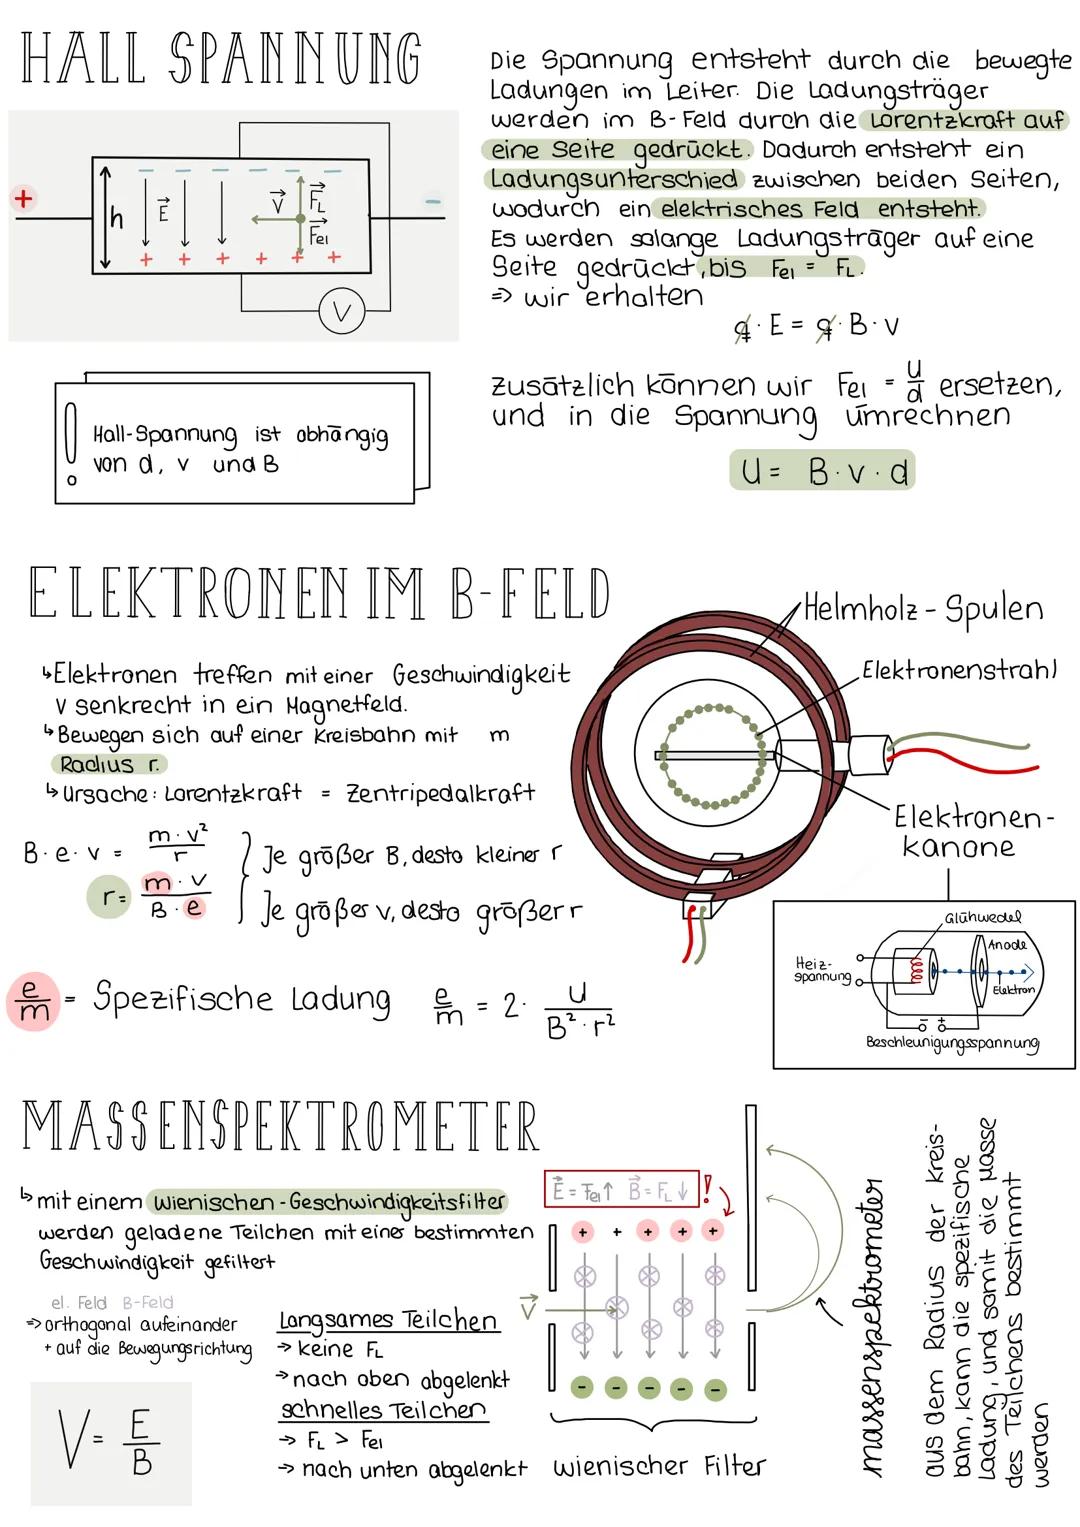 HALL SPANNUNG
Die Spannung entsteht durch die bewegte
Ladungen im Leiter. Die Ladungsträger
werden im B-Feld durch die Lorentzkraft auf
eine Seite gedrückt. Dadurch entsteht ein
Ladungsunterschied zwischen beiden Seiten,
wodurch ein elektrisches Feld entsteht.
Es werden solange Ladungsträger auf eine
Seite gedrückt, bis Fel = FL.
=> wir erhalten
q · E = q · B · v
zusätzlich können wir Fel = U/d ersetzen,
und in die Spannung umrechnen
U = B · v · d
+ h E v FL Fel −
− − − − − −
+ + + + + +
V
! Hall-Spannung ist abhängig
von d, v und B
ELEKTRONEN IM B-FELD
↳ Elektronen treffen mit einer Geschwindigkeit
v senkrecht in ein Magnetfeld.
↳ Bewegen sich auf einer Kreisbahn mit m
Radius r.
↳ Ursache: Lorentzkraft = Zentripedalkraft
B · e · v = m · v²/r
r = m · v/B · e
Je größer B, desto kleiner r
Je größer v, desto größer r
e/m = Spezifische Ladung e/m = 2 · U/B² · r²
Helmholz - Spulen
Elektronenstrahl
Elektronen-
kanone
Glühwedel
Anode
Heiz-
spannung
Elektron
− +
Beschleunigungsspannung
MASSENSPEKTROMETER
↳ mit einem wienischen - Geschwindigkeitsfilter
werden geladene Teilchen mit einer bestimmten
Geschwindigkeit gefiltert
el. Feld B-Feld
=> orthogonal aufeinander
+ auf die Bewegungsrichtung
V = E/B
Langsames Teilchen
→ keine FL
→ nach oben abgelenkt
schnelles Teilchen
→ FL > Fel
→ nach unten abgelenkt
E = Fel ↑ B = FL ↓ !
+ + + + +
v
− − − − −
wienischer Filter
massenspektrometer
aus dem Radius der Kreis-
bahn, kann die spezifische
Ladung, und somit die Masse
des Teilchens bestimmt
werden